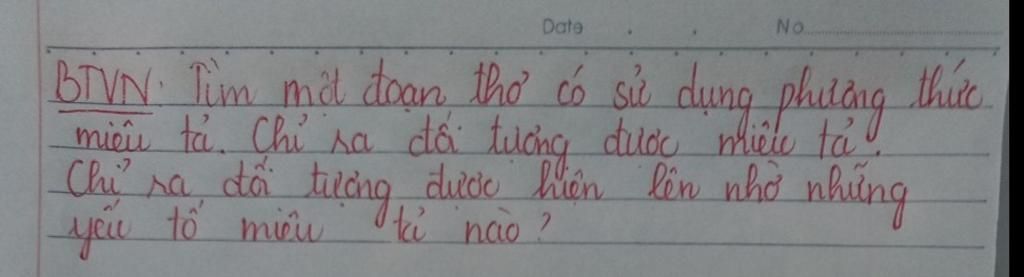 Date . . No
BTVN: Tìm một đoạn thơ có sử dụng phương thức
miêu tả. Chỉ ra đối tượng được miêu tả.
Chỉ ra đối tượng được hiện lên nhờ những
yếu tố miêu tả nào?